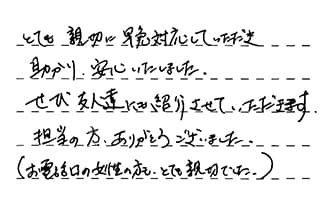 とても 親切に 早急対応していただき
助かり、安心いたしました。
ぜひ友人達にも紹介させていただきます。
担当の方、ありがとうございました。
(お電話口の女性の方も、とても親切でした。)